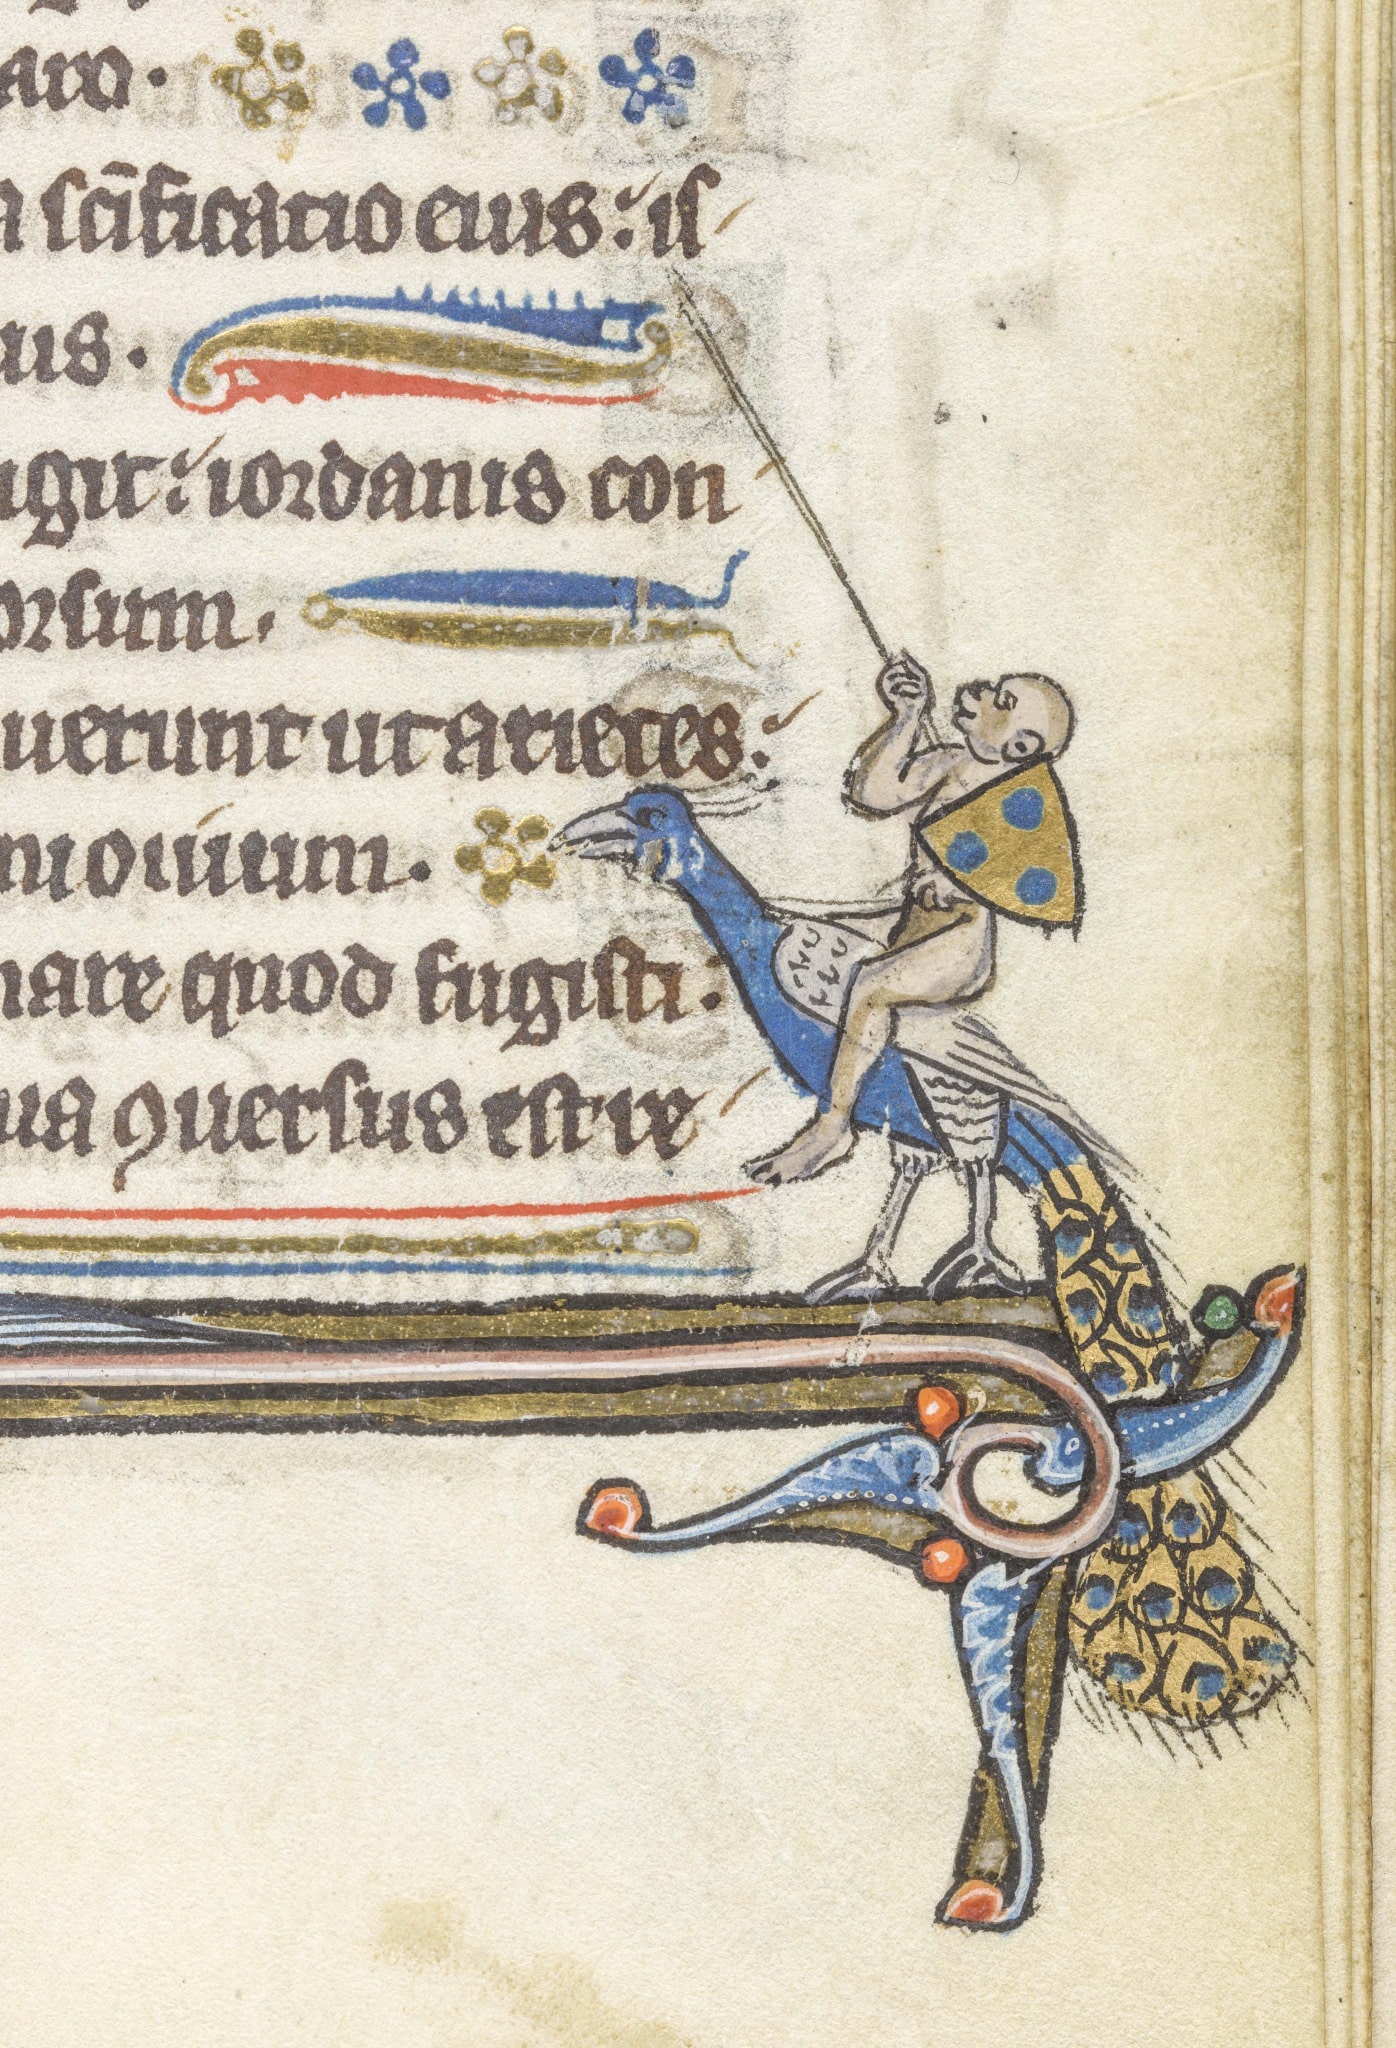 aro.
a sc̄ificatio eius: is
us.
ugit: iordanis con
orsum.
uerunt ut arietes:
ni ouium.
mare quod fugisti.
ia ꝯuersus est re